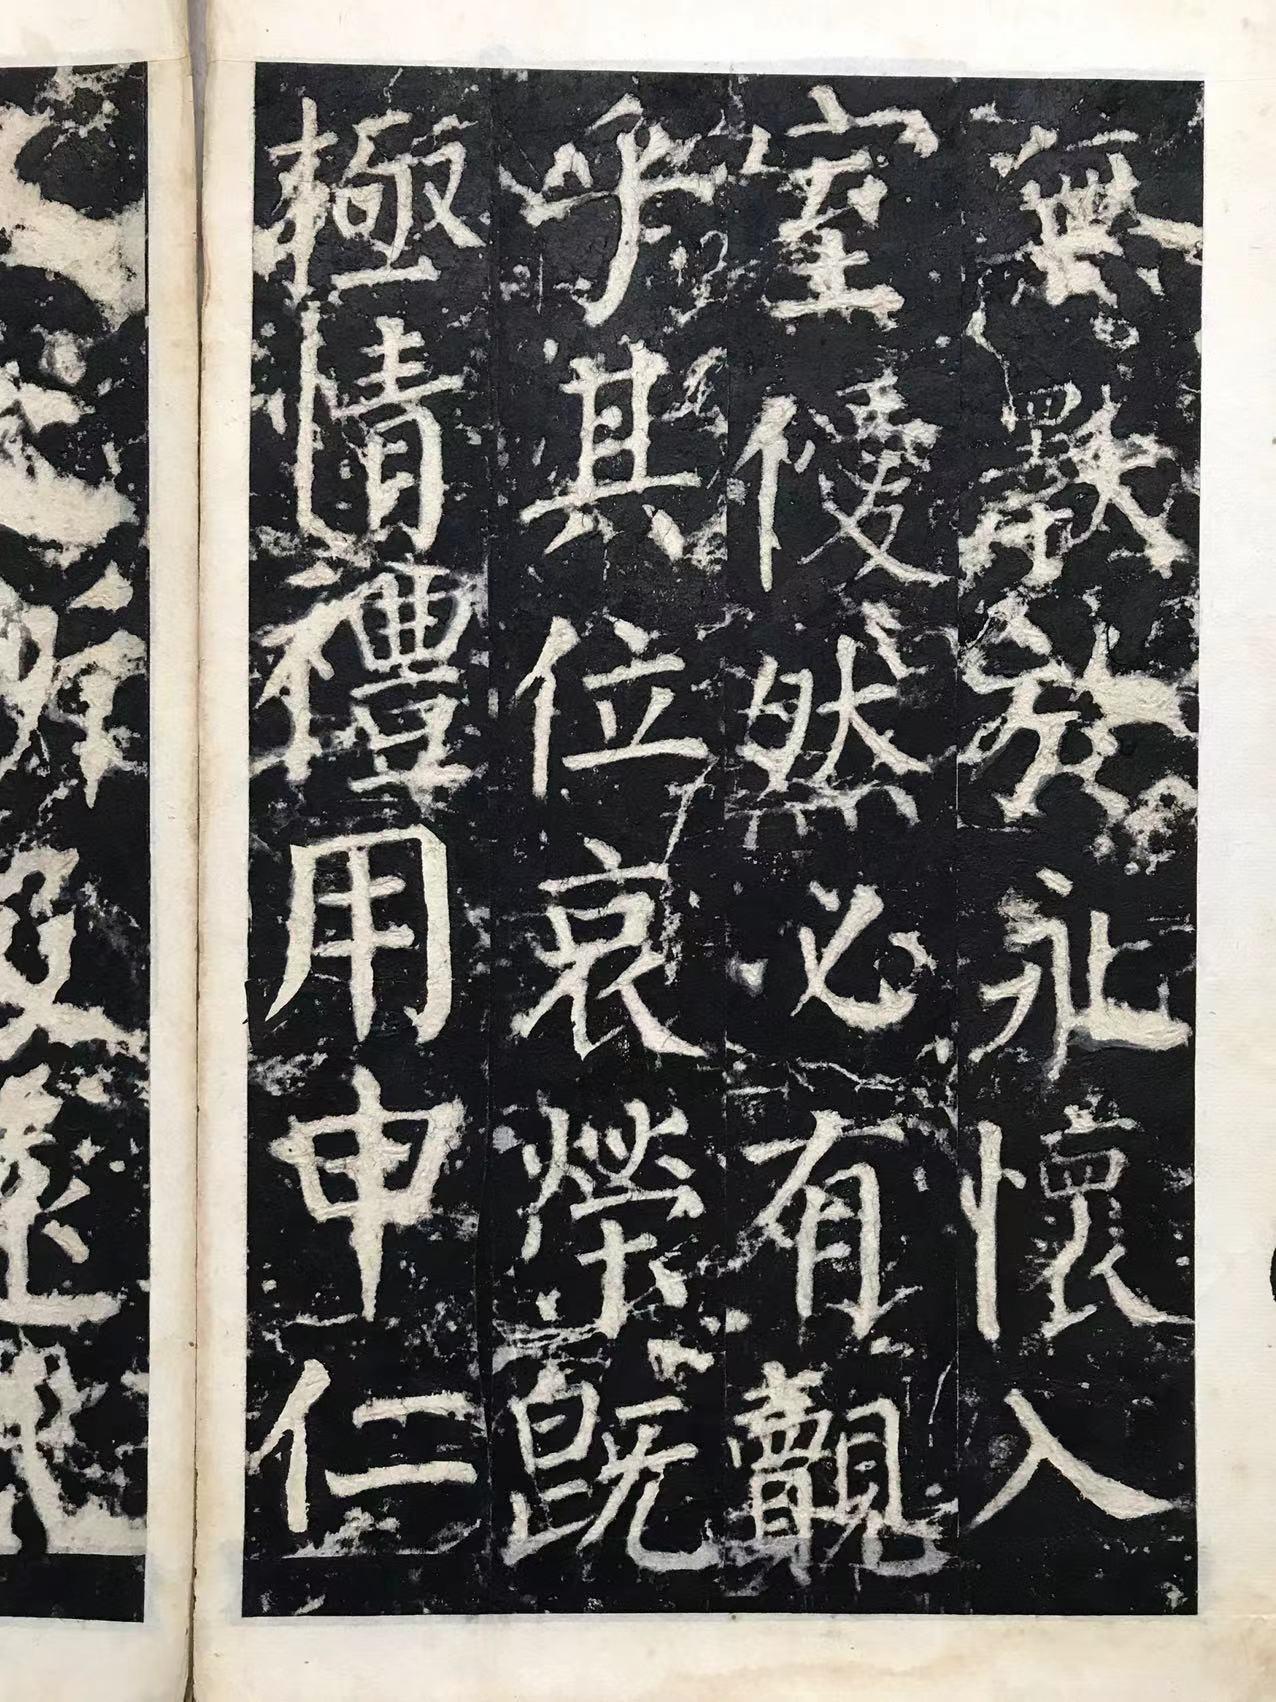 無斁於永懷入
室僾然必有覿
乎其位哀榮既
極情禮用申仁